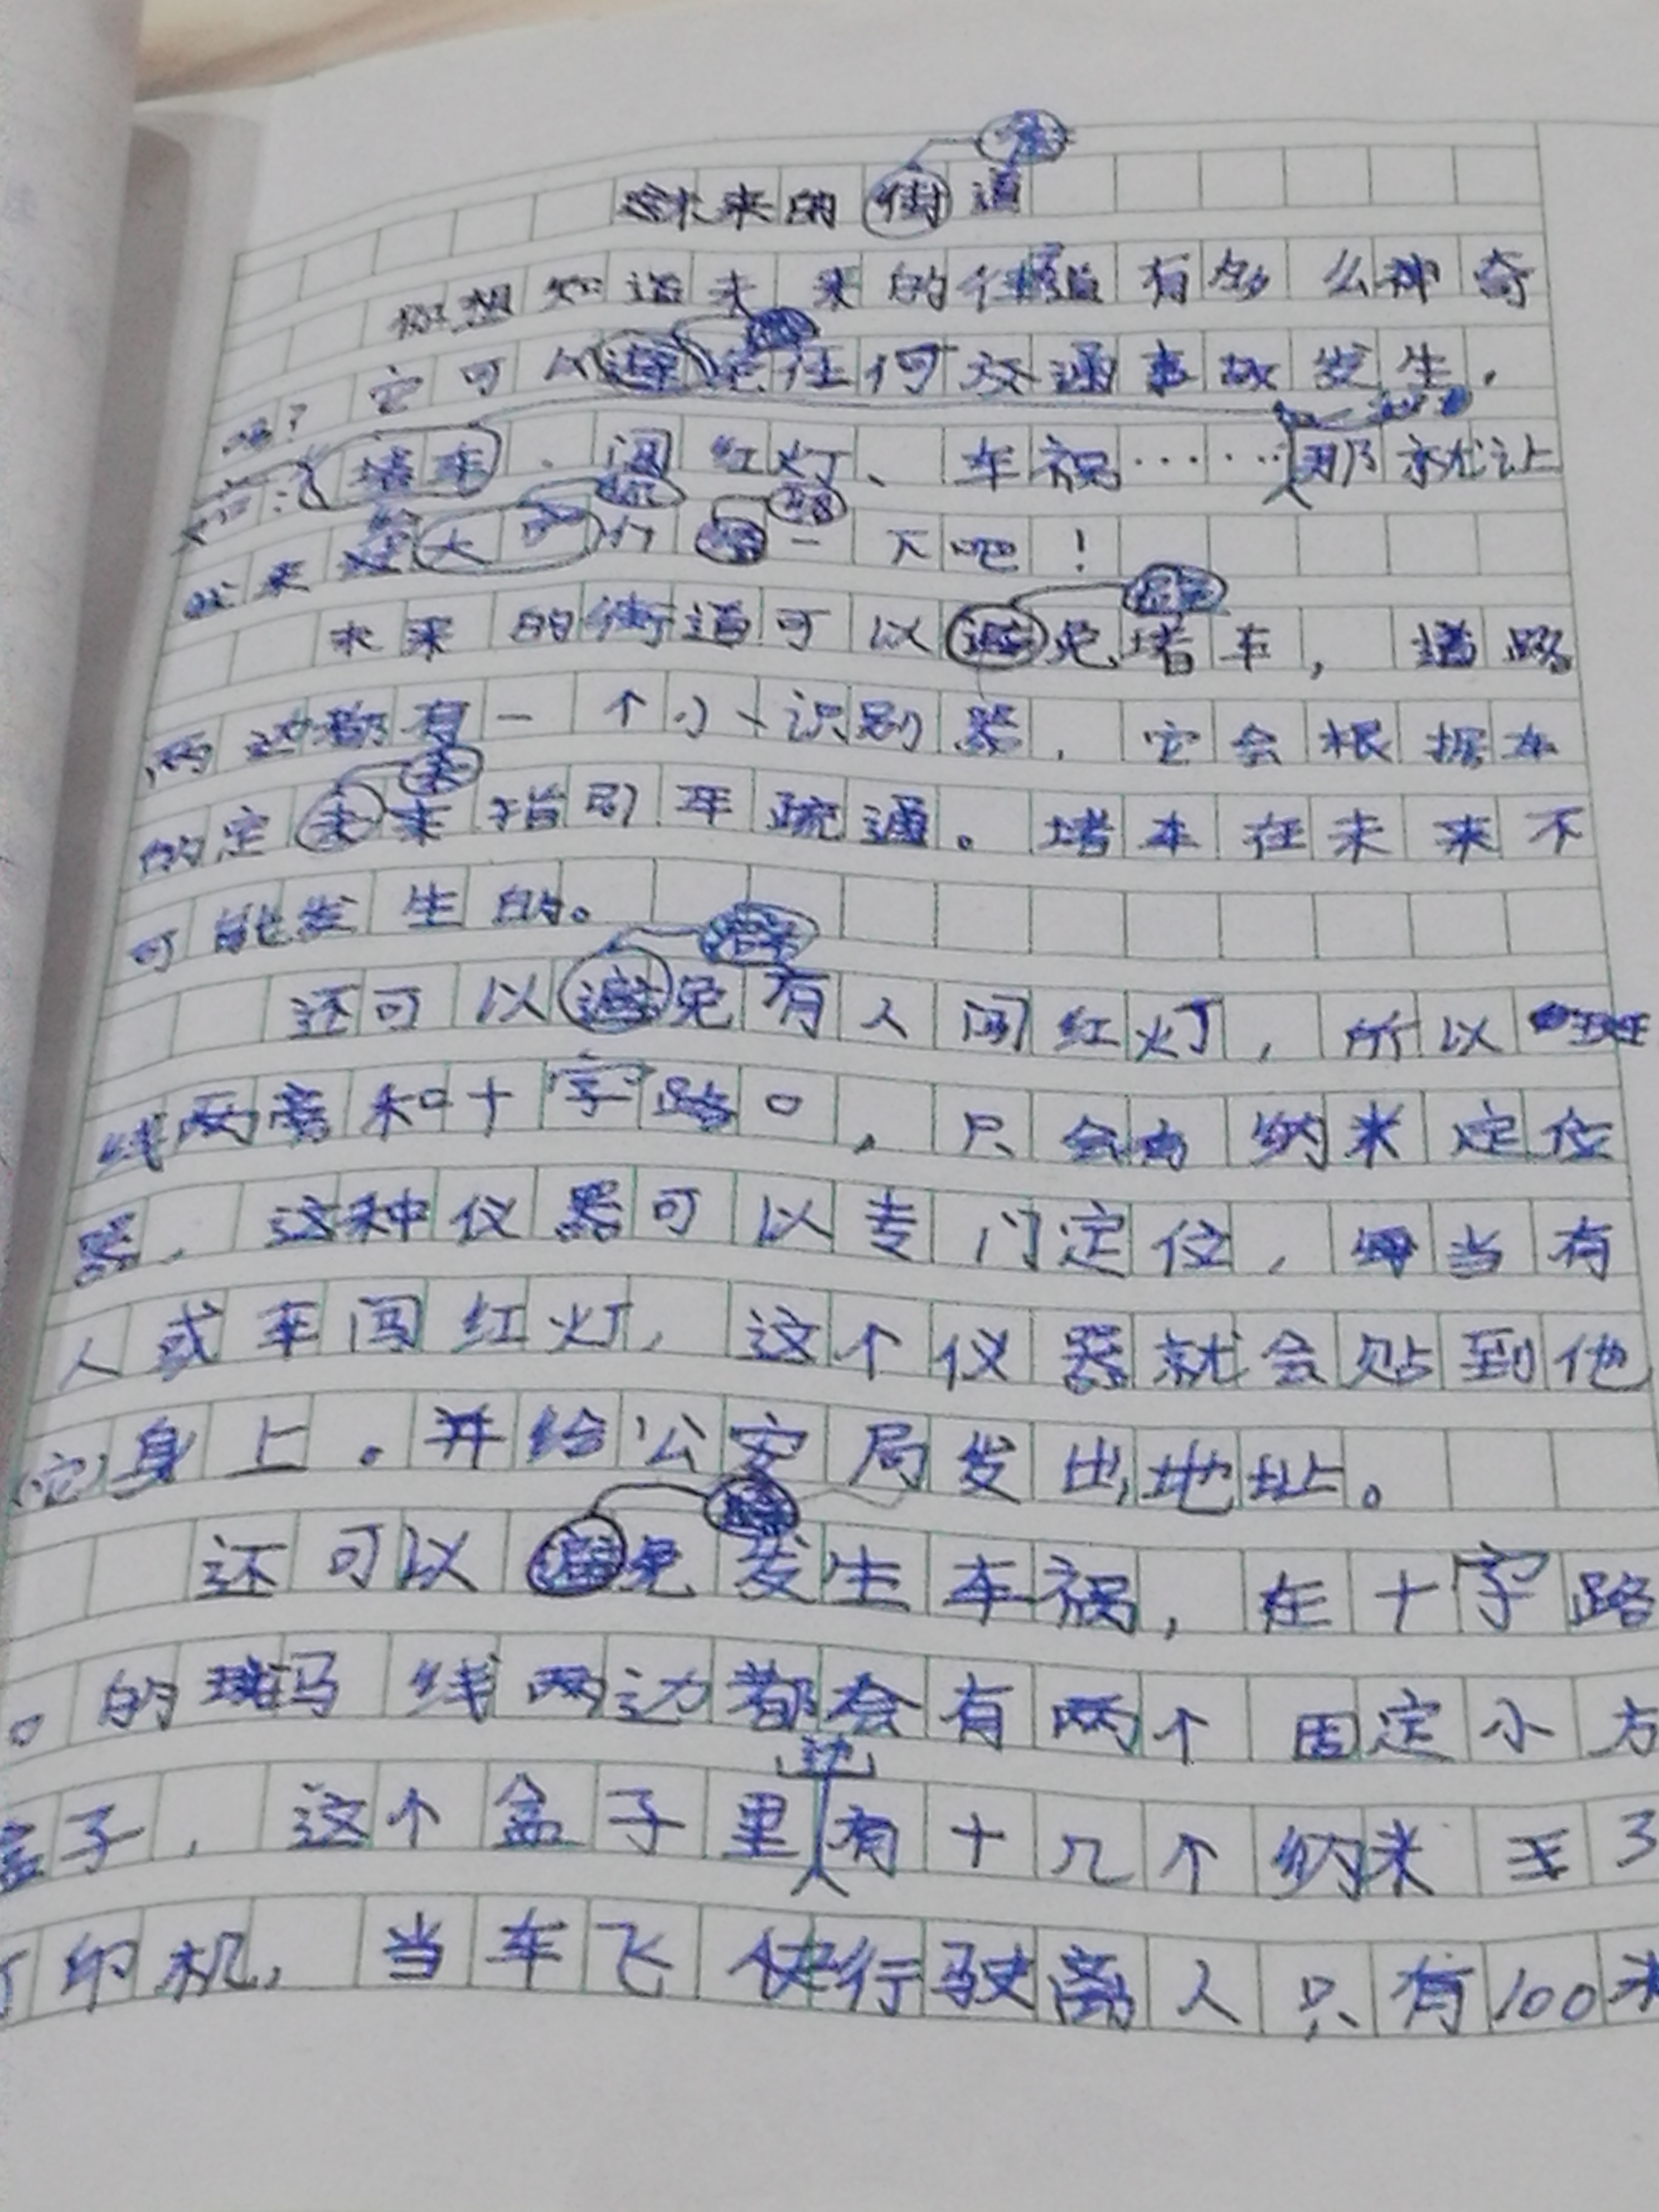 未来的街道
你想知道未来的街道有多么神奇
吗？它可以避免任何交通事故发生，
堵车、闯红灯、车祸……那就让
我来给大家介一下吧！
未来的街道可以避免堵车，道路
两边都有一个小识别器，它会根据车
的定未来指引车疏通。堵车在未来不
可能发生的。
还可以避免有人闯红灯，所以斑
线两旁和十字路口，只会有纳米定位
器，这种仪器可以专门定位，每当有
人或车闯红灯，这个仪器就会贴到他
(它)身上。并给公安局发出地址。
还可以避免发生车祸，在十字路
口的斑马线两边都会有两个固定小方
盒子，这个盒子里边有十几个纳米 3
打印机，当车飞快行驶离人只有100米